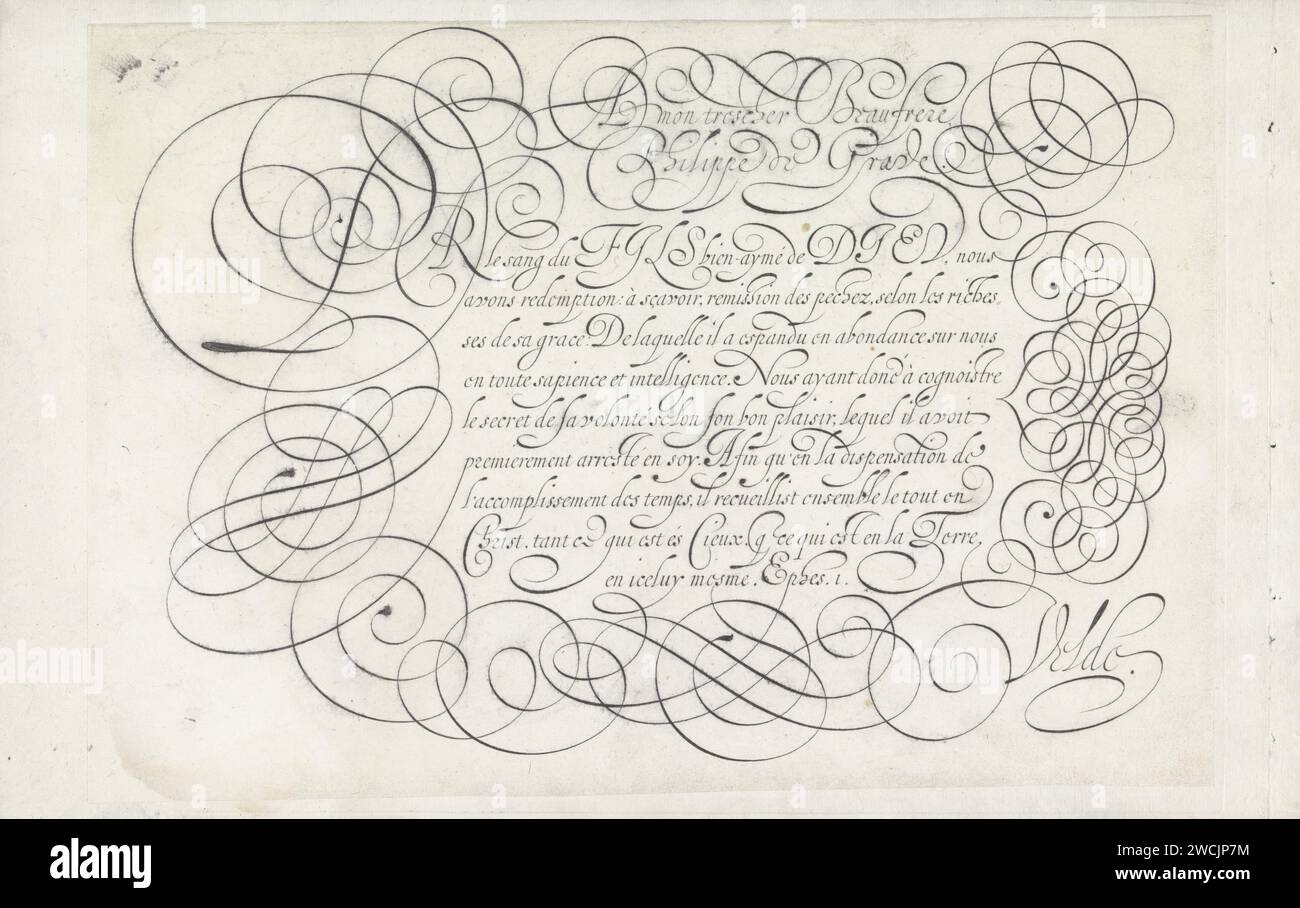 A mon trescher Beaufrere
Philippe de Grade.
PAR le sang du FILS bien-aymé de DIEV, nous
avons redemption: à sçavoir, remission des pechez, selon les riches,
ses de sa grace. De laquelle il a espandu en abondance sur nous
en toute sapience et intelligence. Nous ayant donc à cognoistre
le secret de sa volonté selon son bon plaisir, lequel il avoit
premierement arresté en soy. Afin qu'en la dispensation de
l'accomplissement des temps, il recueillist ensemble le tout en
Christ, tant ce qui est és Cieux, q̃ ce qui est en la Terre,
en iceluy mesme. Ephes. 1.
Velde.
alamy
alamy
alamy
a
a
a
a
alamy
Image ID: 2WCJP7M
www.alamy.com